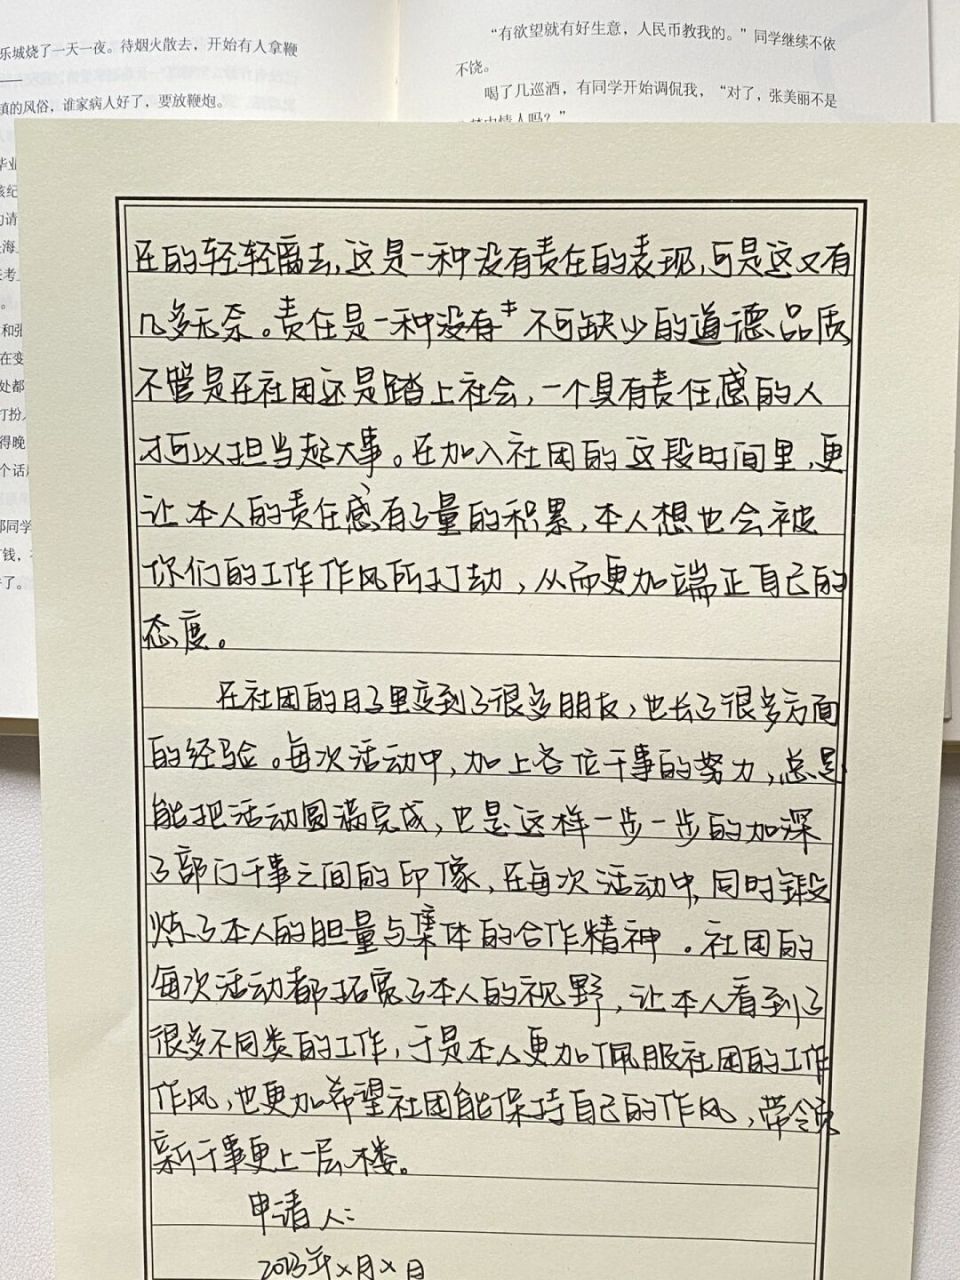 乐城烧了一天一夜。待烟火散去，开始有人拿鞭
镇的风俗，谁家病人好了，要放鞭炮。
“有欲望就有好生意，人民币教我的。”同学继续不依
不饶。
喝了几巡酒，有同学开始调侃我，“对了，张美丽不是
梦中情人吗？”
在的轻轻离去，这是一种没有责任的表现，可是这又有
几多无奈。责任是一种没有 不可缺少的道德品质
不管是在社团还是踏上社会，一个具有责任感的人
才可以担当起大事。在加入社团的这段时间里，更
让本人的责任感有了量的积累，本人想也会被
你们的工作作风所打动，从而更加端正自己的
态度。
在社团的日子里变到了很多朋友，也长了很多方面
的经验。每次活动中，加上各位干事的努力，总是
能把活动圆满完成，也是这样一步一步的加深
了部门干事之间的印像，在每次活动中，同时锻
炼了本人的胆量与集体的合作精神。社团的
每次活动都拓宽了本人的视野，让本人看到了
很多不同类的工作，于是本人更加佩服社团的工作
作风，也更加希望社团能保持自己的作风，带领
新干事更上一层楼。
申请人：
2023年x月x日